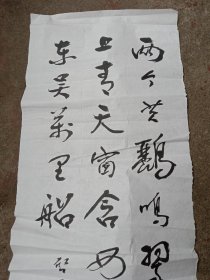 两个黄鸝鳴翠
上青天窗含西
东吴萬里船